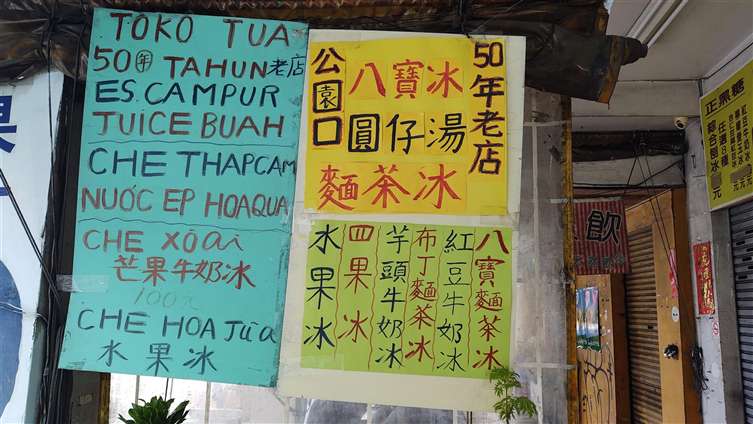 TOKO TUA
50年 TAHUN老店
ES.CAMPUR
JUICE BUAH
CHE THAPCAM
NUÓC EP HOAQUA
CHE XÒai
芒果牛奶冰
100元
CHE HOA JŪa
水果冰
公園口
八寶冰
圓仔湯
麵茶冰
50年老店
水果冰
四果冰
芋頭牛奶冰
布丁麵茶冰
紅豆牛奶冰
八寶麵茶冰
果
飲
正果糖
綜合
任選3種
元